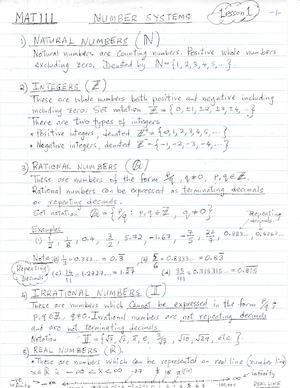 MAT111 NUMBER SYSTEMS Lesson 1 -1-
1) NATURAL NUMBERS (ℕ)
Natural numbers are counting numbers. Positive whole numbers
excluding zero. Denoted by ℕ = {1, 2, 3, 4, 5, ...}
2) INTEGERS (ℤ)
These are whole numbers both positive and negative including
including zero. Set notation ℤ = {0, ±1, ±2, ±3, ±4, ..}
There are two types of integers
• Positive integers, denoted ℤ⁺ = {0, 1, 2, 3, 4, 5, ...}
• Negative integers, denoted ℤ⁻ = {-1, -2, -3, -4, ...}
3) RATIONAL NUMBERS (ℚ)
These are numbers of the form p/q, q≠0, p, q ∈ ℤ.
Rational numbers can be expressed as terminating decimals
or repeating decimals.
Set notation ℚ = {p/q : p, q ∈ ℤ, q ≠ 0}
Repeating
decimals
Examples
(i) 1/2, 1/8, 0.4, 3/2, 5.72, -1.67, -7/5, 0.333...,
Note: (1) 1/3 = 0.333... = 0.3̅ (2) 5/6 = 0.8333... = 0.83̅
Repeating
Decimals
4) IRRATIONAL NUMBERS (𝕀)
These are numbers which cannot be expressed in the form p/q;
p, q ∈ ℤ, q≠0. Irrational numbers are not repeating decimals
and are not terminating decimals
Notation 𝕀 = {√3, √2, π, e, √10, √29, etc}
5) REAL NUMBERS (ℝ).
These are numbers which can be represented on real line (number line)
x ∈ ℝ is -∞ < x < ∞
∞ infinity
REAL LINE